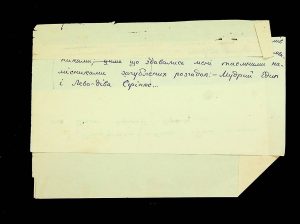 ми
ма,
никами, що здавались мені таємними на-
місниками загублених розгадок: – Мудрий Едип
і Лево-діва Сфінкс...